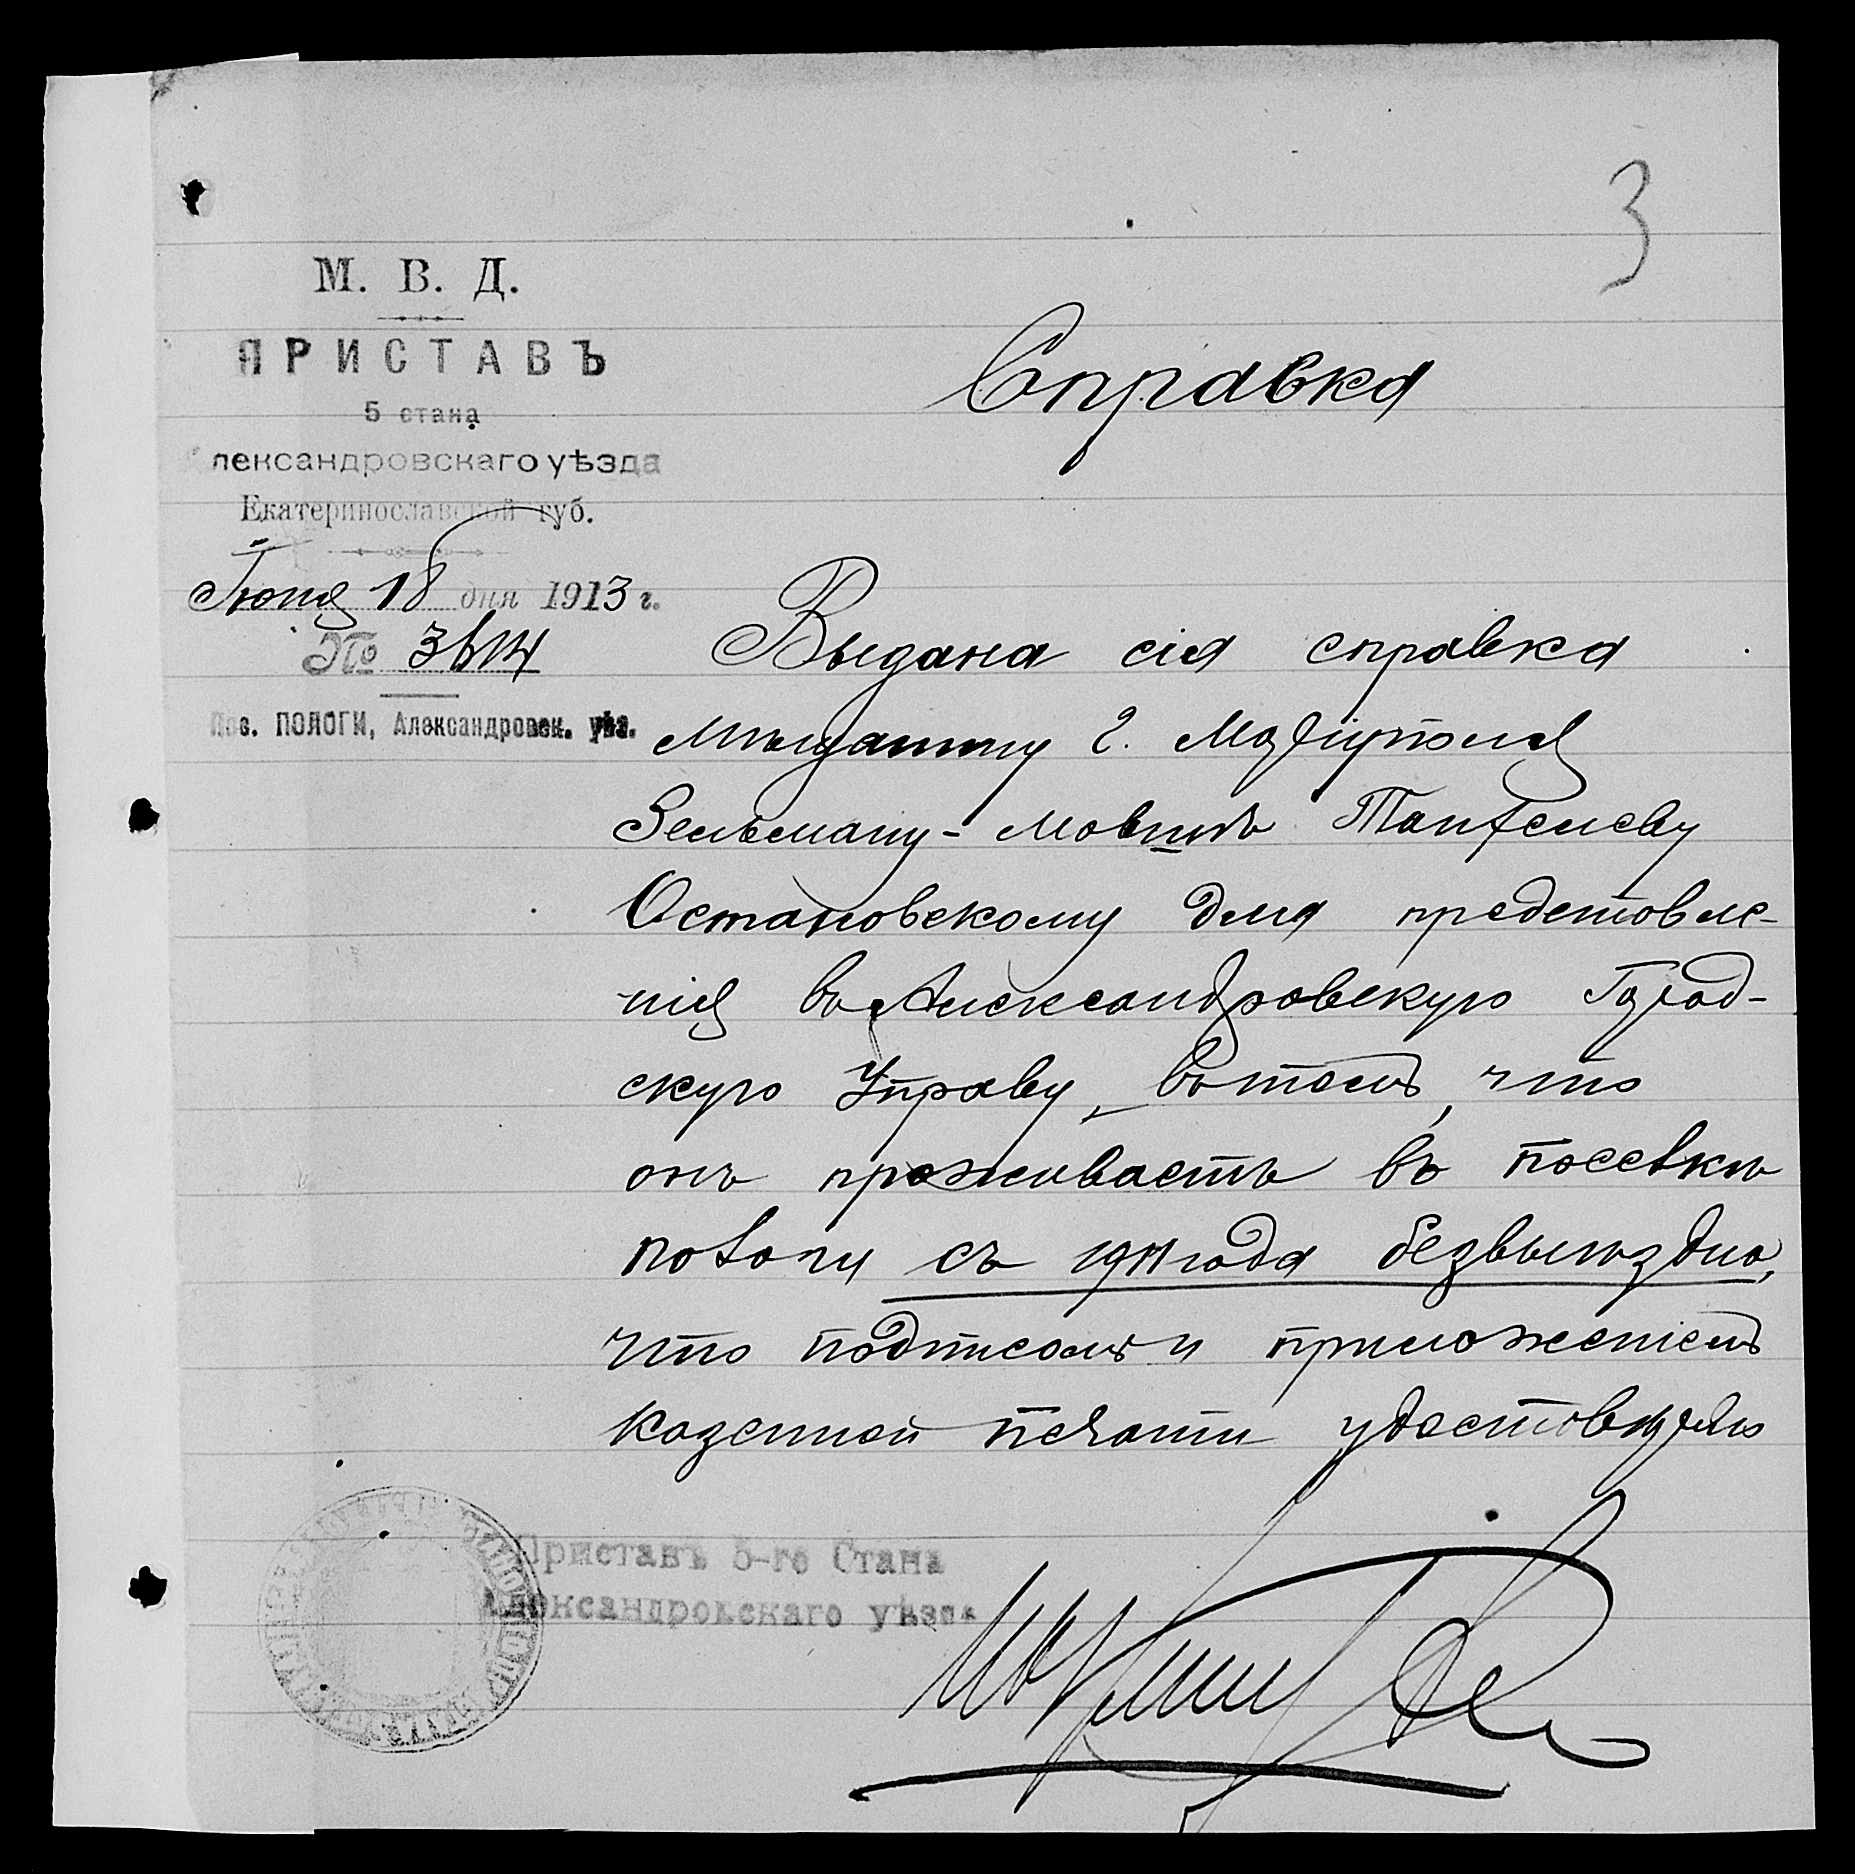 3
М. В. Д.
ПРИСТАВЪ
5 стана
лександровскаго уѣзда
Екатеринославской губ.
Іюня 18 дня 1913 г.
№
Пос. ПОЛОГИ, Александровск. уѣз.
Справка
Выдана сія справка
Мѣщанину г. Маріуполя
Зельману-Мовшѣ Танхелеву
Остановскому для представле-
нія въ Александровскую Город-
скую Управу, въ томъ, что
онъ проживаетъ въ поселкѣ
Пологи съ 1911 года безвыѣздно,
что подписомъ и приложеніемъ
казенной печати удостовѣряю
Приставъ 5-го Стана
Александровскаго уѣзда